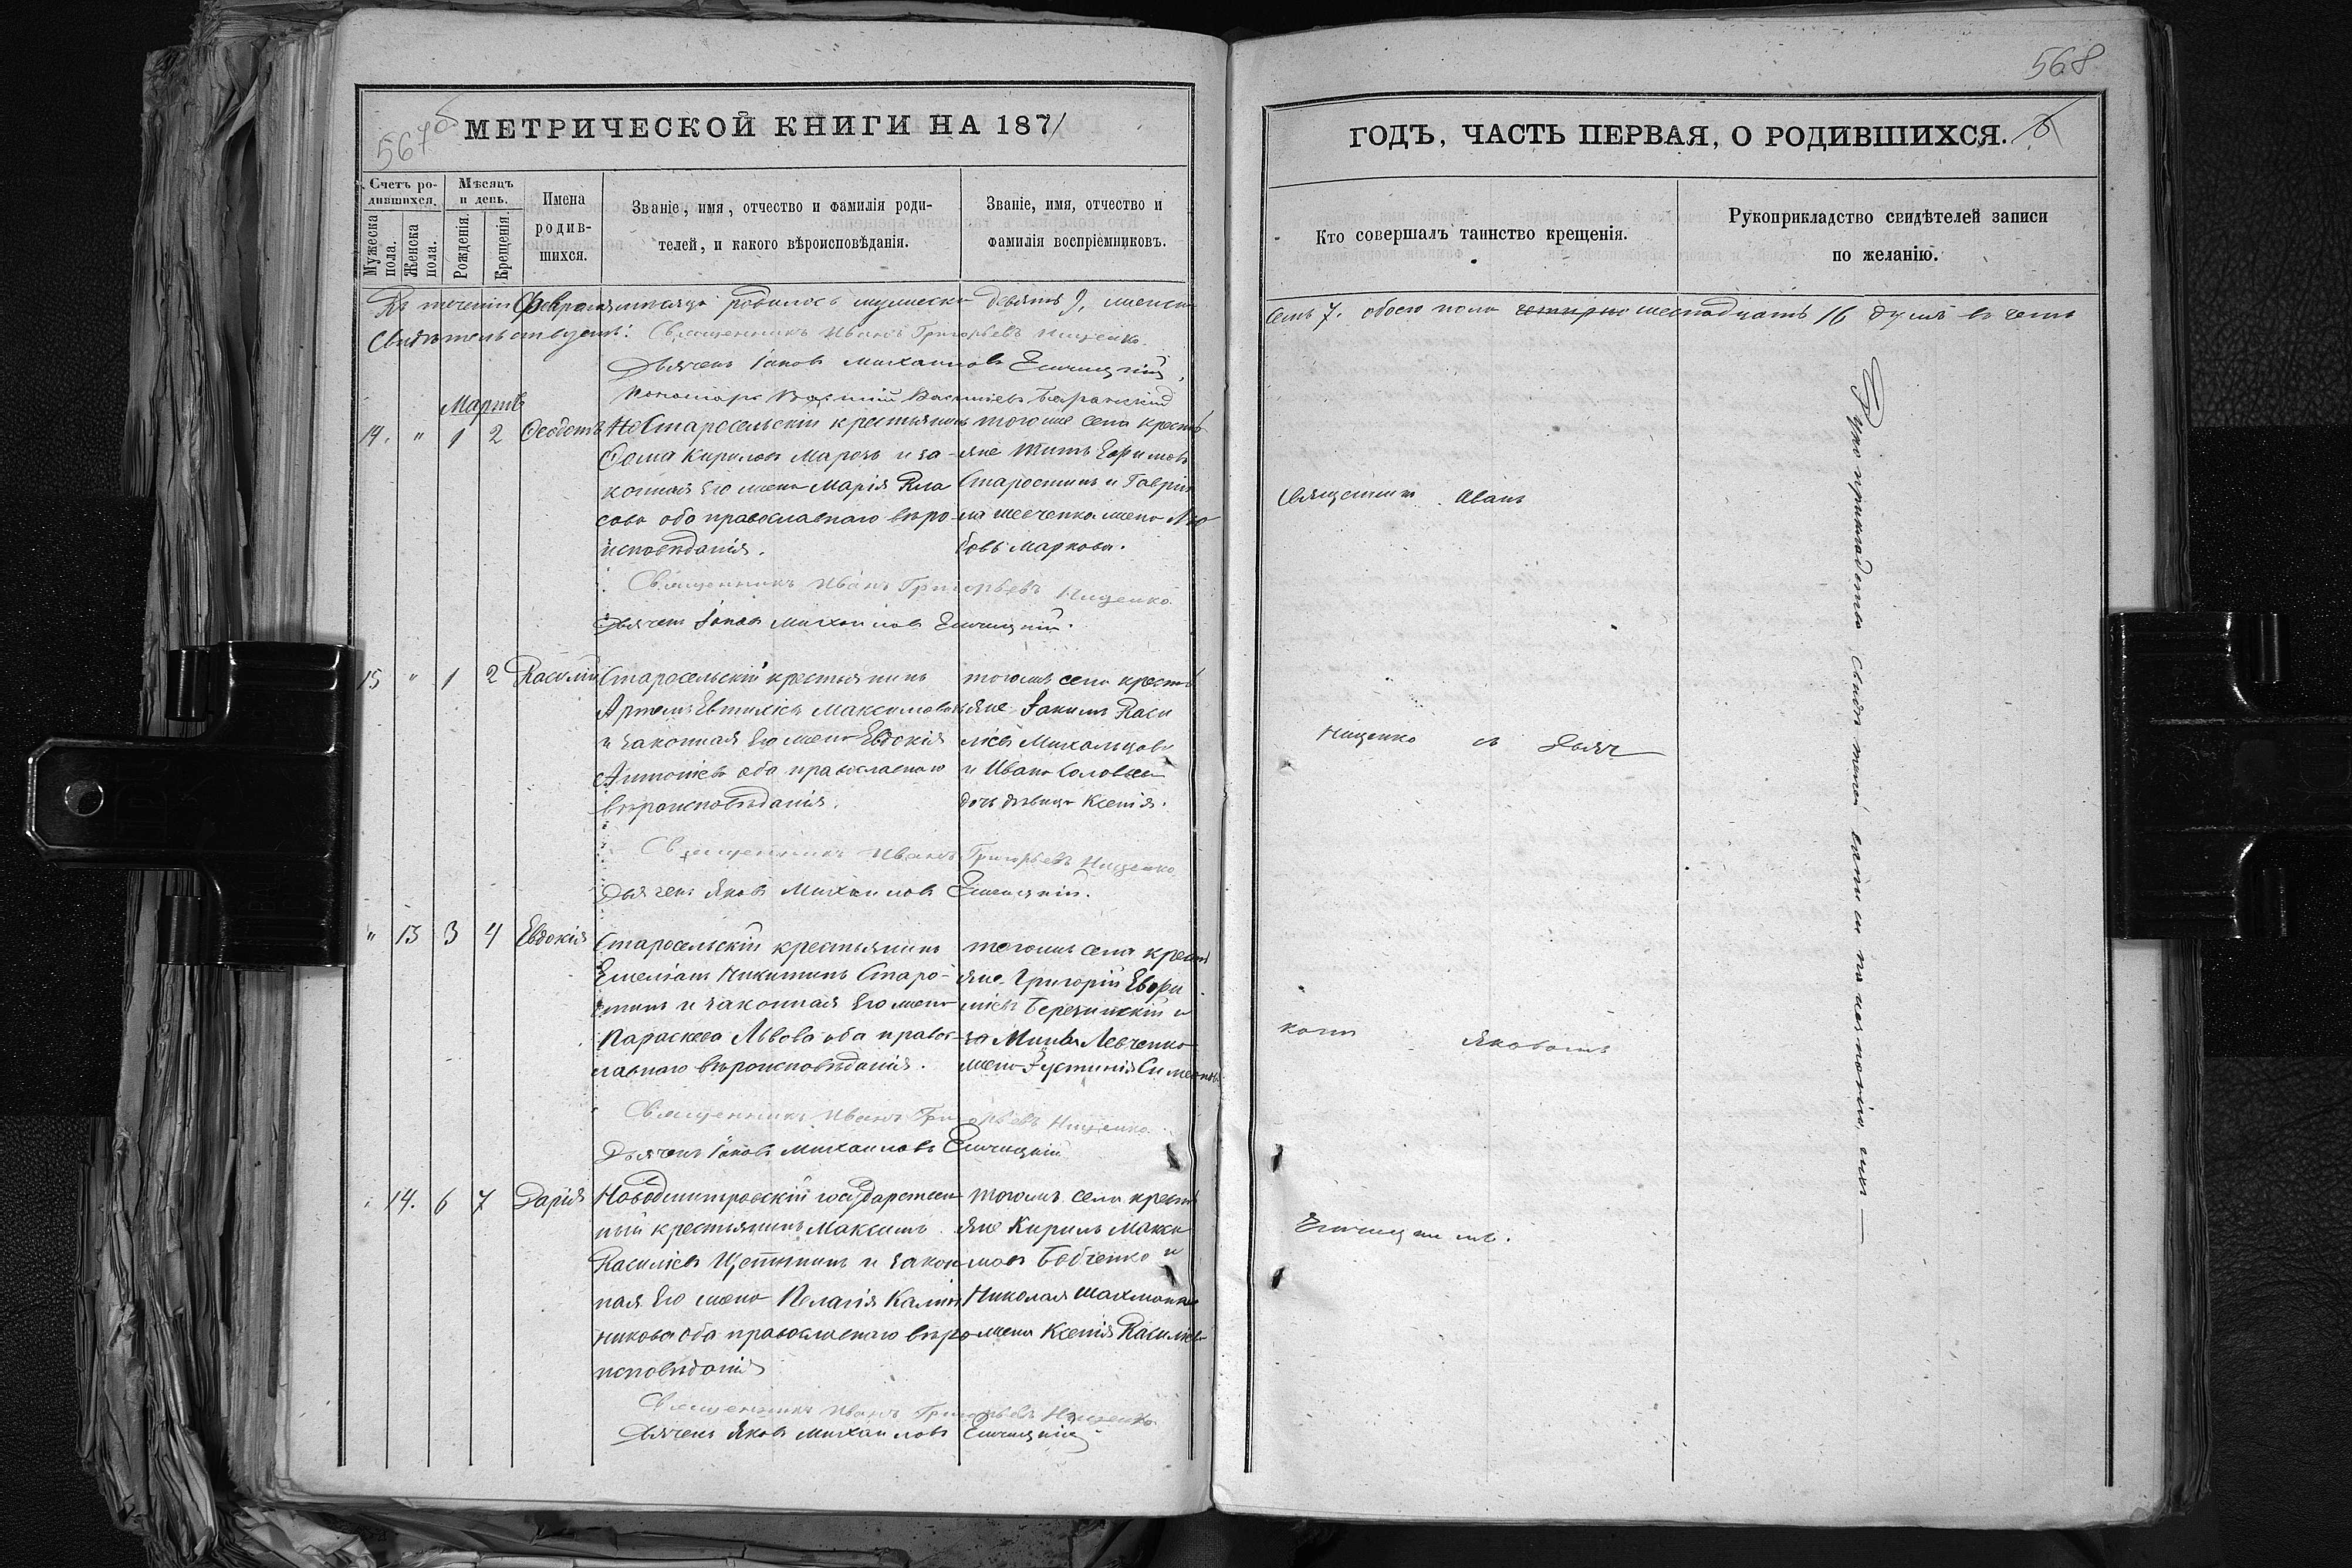 567об
МЕТРИЧЕСКОЙ КНИГИ НА 1871
Счетъ ро-
дившихся.
Мужеска
пола.
Женска
пола.
Мѣсяцъ
и день.
Рожденія.
Крещенія.
Имена
родив-
шихся.
Званіе, имя, отчество и фамилія роди-
телей, и какого вѣроисповѣданія.
Званіе, имя, отчество и
фамилія воспріемниковъ.
Въ теченіи Февраля мѣсяца родилось мужеска девять 9, женска
Свидѣтельствуемъ: Священникъ Иванъ Григорьевъ Нищенко.
Дьячекъ Іаковъ Михаиловъ
Пономарь Василій Василіевъ
Мартъ
14. " 1 2 Ѳеодотъ Старосельскій крестьянинъ
Ѳома Кириловъ Марозъ и за-
конная его жена Марія Вла
сова оба православнаго вѣро-
исповѣданія.
тогоже села кресть
яне Титъ Ефимовъ
Старостинъ и Гаври
ла Шевченка жена Лю
бовь Маркова.
Священникъ Иванъ Григорьевъ Нищенко.
Дьячекъ Іаковъ Михаиловъ
15 " 1 2 Василій Старосельскій крестьянинъ
Артемъ Евтихіевъ Максимовъ
и законная его жена Евдокія
Антоніева оба православнаго
вѣроисповѣданія.
тогожъ села кресть
яне Іакимъ Васи
ліевъ
и Ивана Соловья
дочь дѣвица Ксенія.
Священникъ Иванъ Григорьевъ Нищенко
Дьячекъ Яковъ Михаиловъ
" 13 3 4 Евдокія Старосельскій крестьянинъ
Емеліанъ Никитинъ Старо-
стинъ и законная его жена
Параскева Львова оба правос-
лавнаго вѣроисповѣданія.
тогожъ села кресть
яне Григорій Евфи
міевъ и
Левченко
жена Іустинія Симеонова
Священникъ Иванъ Григорьевъ Нищенко.
Дьячекъ Іаковъ Михаиловъ
" 14. 6 7 Дарія Новодмитровскій государствен
ный крестьянинъ Максимъ
Василіевъ Щетининъ и закон
ная его жена Пелагія Калин
никова оба православнаго вѣро
исповѣданія
тогожъ села кресть
яне Кирилъ Макси
мовъ Бабченко и
Николая
жена Ксенія Василіева
Священникъ Иванъ Григорьевъ Нищенко.
Дьячекъ Яковъ Михаиловъ
568
ГОДЪ, ЧАСТЬ ПЕРВАЯ, О РОДИВШИХСЯ.
Кто совершалъ таинство крещенія.
Рукоприкладство свидѣтелей записи
по желанію.
семь 7. обоего пола шестнадцать 16 душъ въ чемъ
Священникъ Иванъ
Нищенко съ Дьяч
комъ Яковомъ